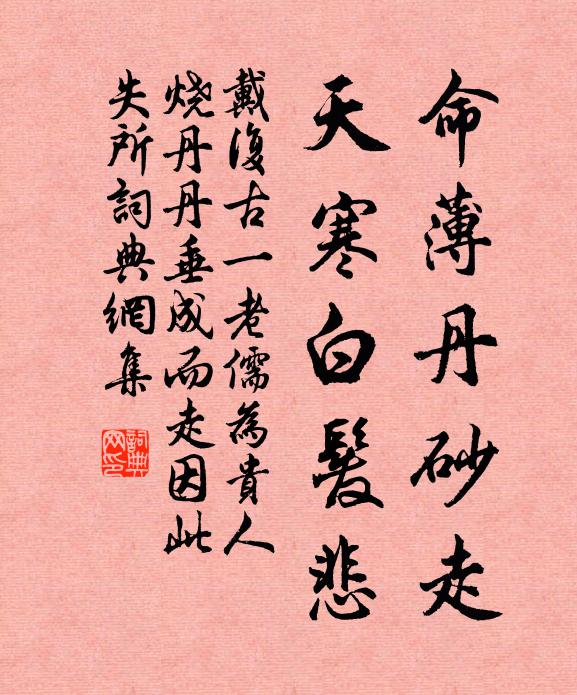 命薄丹砂走
天寒白髮悲
戴復古一老儒為貴人
烧丹丹垂成而走因此
失所詞典網集
詞典
网印